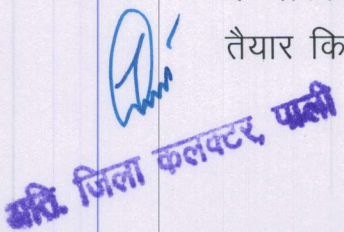 तैयार कि
अति. जिला कलक्टर, पाली